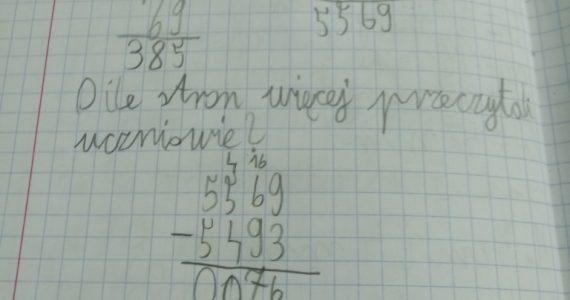 69
5569
385
O ile stron więcej przeczytali
uczniowie?
4 16
5569
-5493
0076